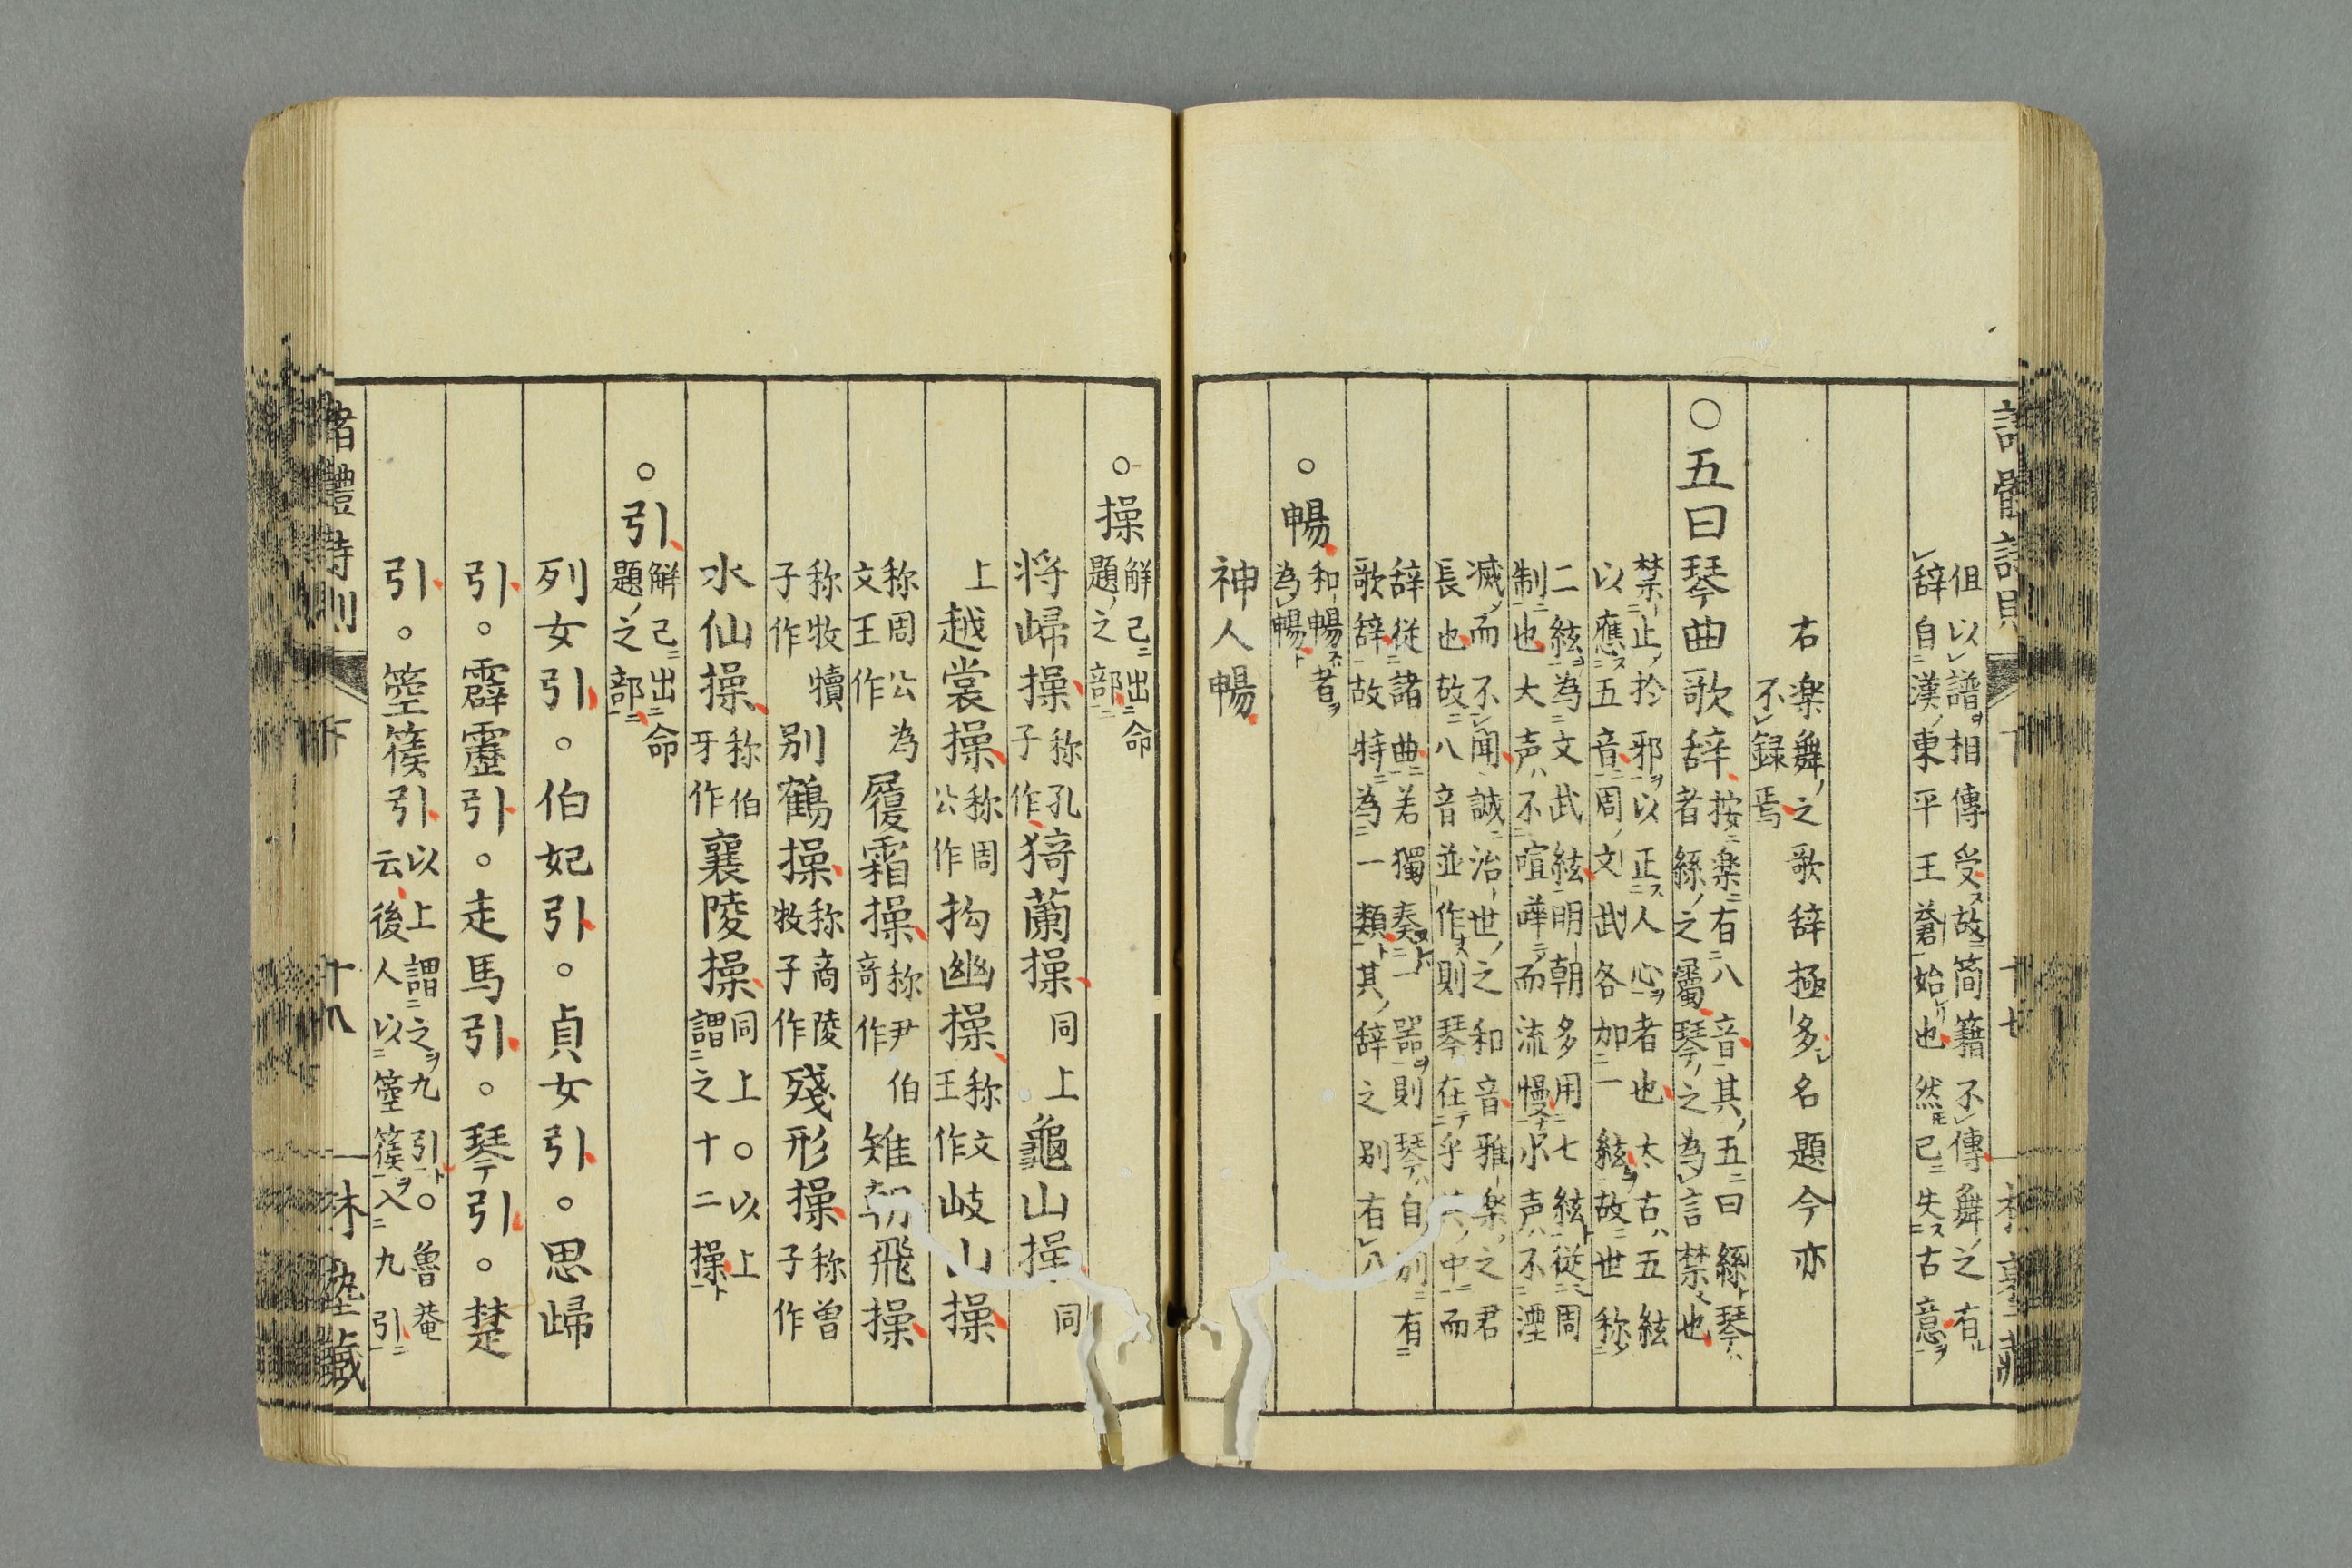 伹以譜相傳受故簡籍不傳舞之有
辞自漢東平王蒼始也然已失古意
右楽舞之歌辞極多名題今亦
不録焉
○五曰琴曲歌辞按楽有八音其五曰絲琴
者絲之屬琴之為言禁也
禁止於邪以正人心者也太古五絃
以應五音周文武各加一絃故世称
二絃為文武絃明朝多用七絃従周
制也大声不喧嘩而流慢小声不湮
滅而不聞誠治世之和音雅楽之君
長也故八音並作則琴在乎 中而
辞従諸曲若獨奏一器則琴自別有
歌辞故特為一類其辞之別有八
○暢和暢者
為暢
神人暢
○操觧已出命
題之部
将歸操称孔
子作猗蘭操同上龜山操同
上越裳操称周
公作拘幽操称文
王作岐山操
称周公為
文王作履霜操称尹伯
竒作雉朝飛操
称牧犢
子作別鶴操称商陵
牧子作殘形操称曽
子作
水仙操称伯
牙作襄陵操同上○以上
謂之十二操
○引觧已出命
題之部
列女引。伯妃引。貞女引。思歸
引。霹靂引。走馬引。琴引。楚
引。箜篌引以上謂之九引○魯菴
云後人以箜篌入九引
諸體詩則 下 十八